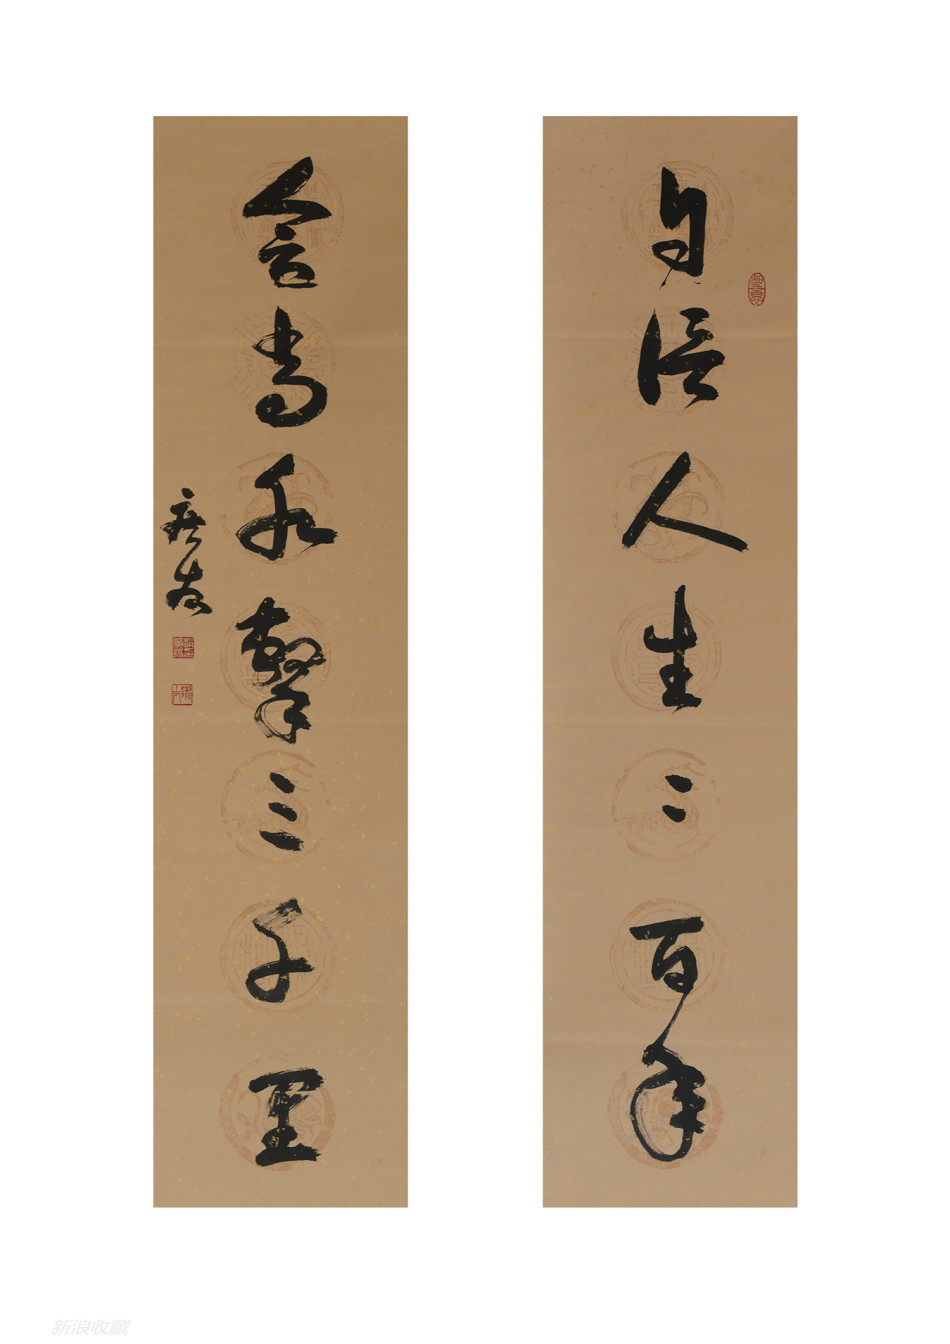 自信人生二百年
会当水击三千里
新浪收藏